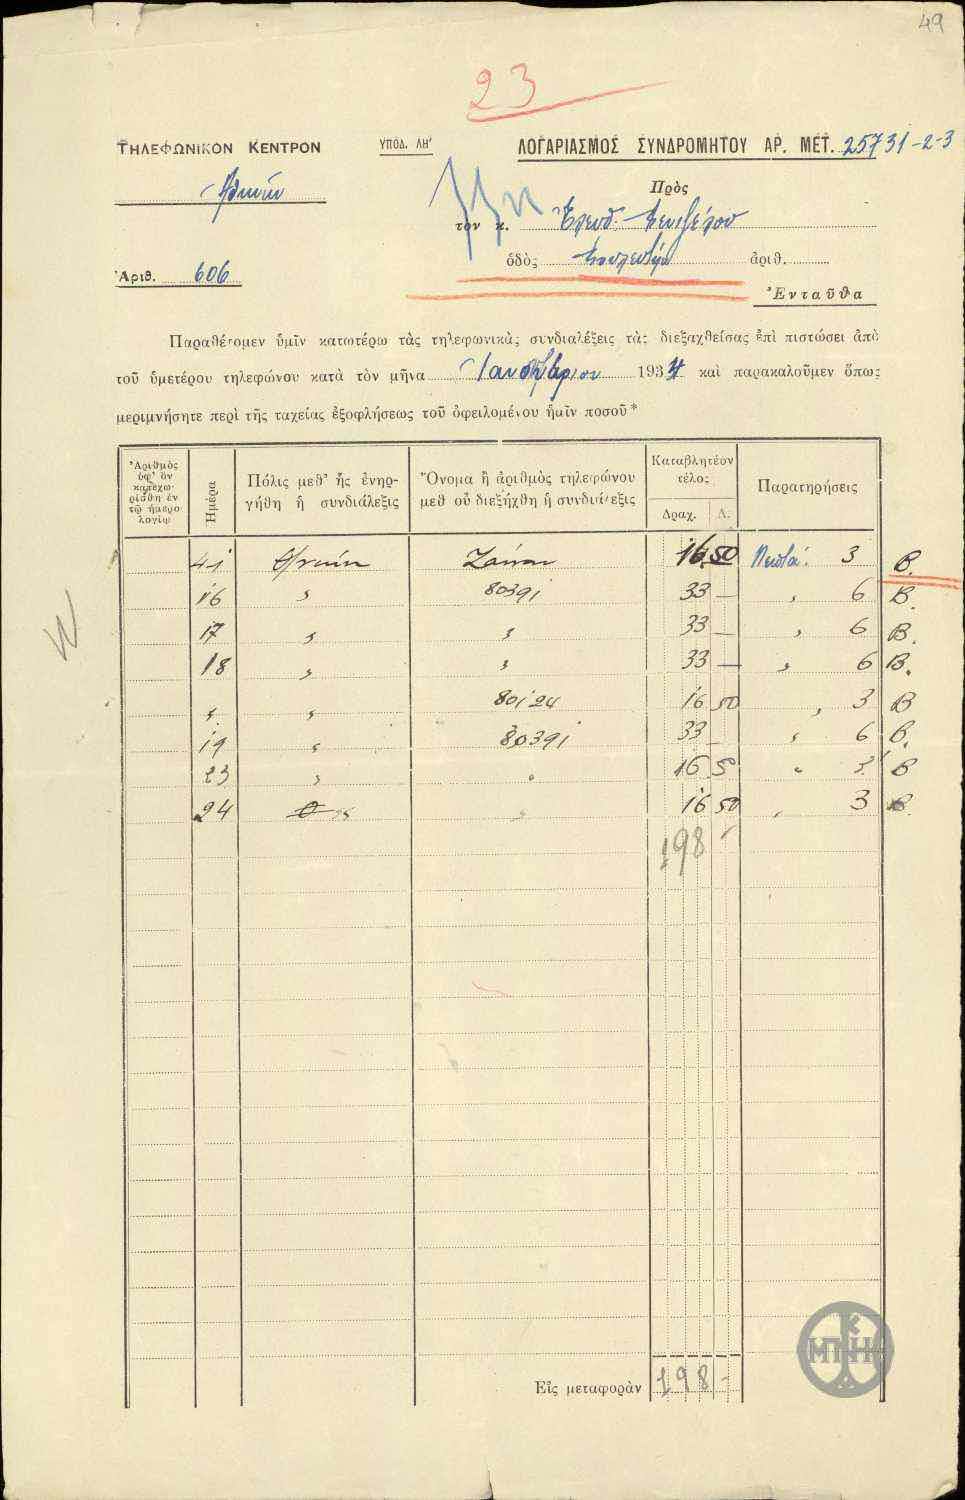 49
23
ΤΗΛΕΦΩΝΙΚΟΝ ΚΕΝΤΡΟΝ
ΥΠΟΔ. ΛΗ'
ΛΟΓΑΡΙΑΣΜΟΣ ΣΥΝΔΡΟΜΗΤΟΥ ΑΡ. ΜΕΤ. 25731-2-3
Ἀθηνῶν
Πρὸς
τὸν κ. Ἐλευθ. Βενιζέλον
ὁδὸς ἀριθ.
Ἀριθ. 606
Ἐνταῦθα
Παραθέτομεν ὑμῖν κατωτέρω τὰς τηλεφωνικὰς συνδιαλέξεις τὰς διεξαχθείσας ἐπὶ πιστώσει ἀπὸ
τοῦ ὑμετέρου τηλεφώνου κατὰ τὸν μῆνα Ἰανουάριον 1934 καὶ παρακαλοῦμεν ὅπως
μεριμνήσητε περὶ τῆς ταχείας ἐξοφλήσεως τοῦ ὀφειλομένου ἡμῖν ποσοῦ*
Ἀριθμὸς ὑφ' ὃν κατεχωρίσθη ἐν τῷ ἡμερολογίῳ
Ἡμέρα
Πόλις μεθ' ἧς ἐνηργήθη ἡ συνδιάλεξις
Ὄνομα ἢ ἀριθμὸς τηλεφώνου μεθ οὗ διεξήχθη ἡ συνδιάλεξις
Καταβλητέον τέλος
Δραχ. Λ.
Παρατηρήσεις
16 50 3 Β.
16 " 80391 33 — " 6 Β.
17 " " 33 — " 6 Β.
18 " " 33 — " 6 Β.
" " 80124 16 50 " 3 Β
19 " 80391 33 — " 6 Β.
23 " " 16 5 " 3 Β
24 " " 16 50 " 3 Β.
198 -
Εἰς μεταφορὰν 198 -
ΜΠΚΗ